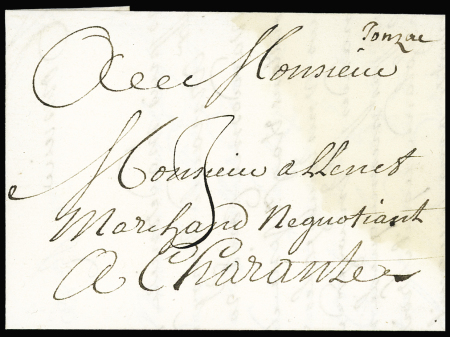 Jonzac
A Monsieur
Monsieur allenet
3
Marchand Neguotiant
A Charante